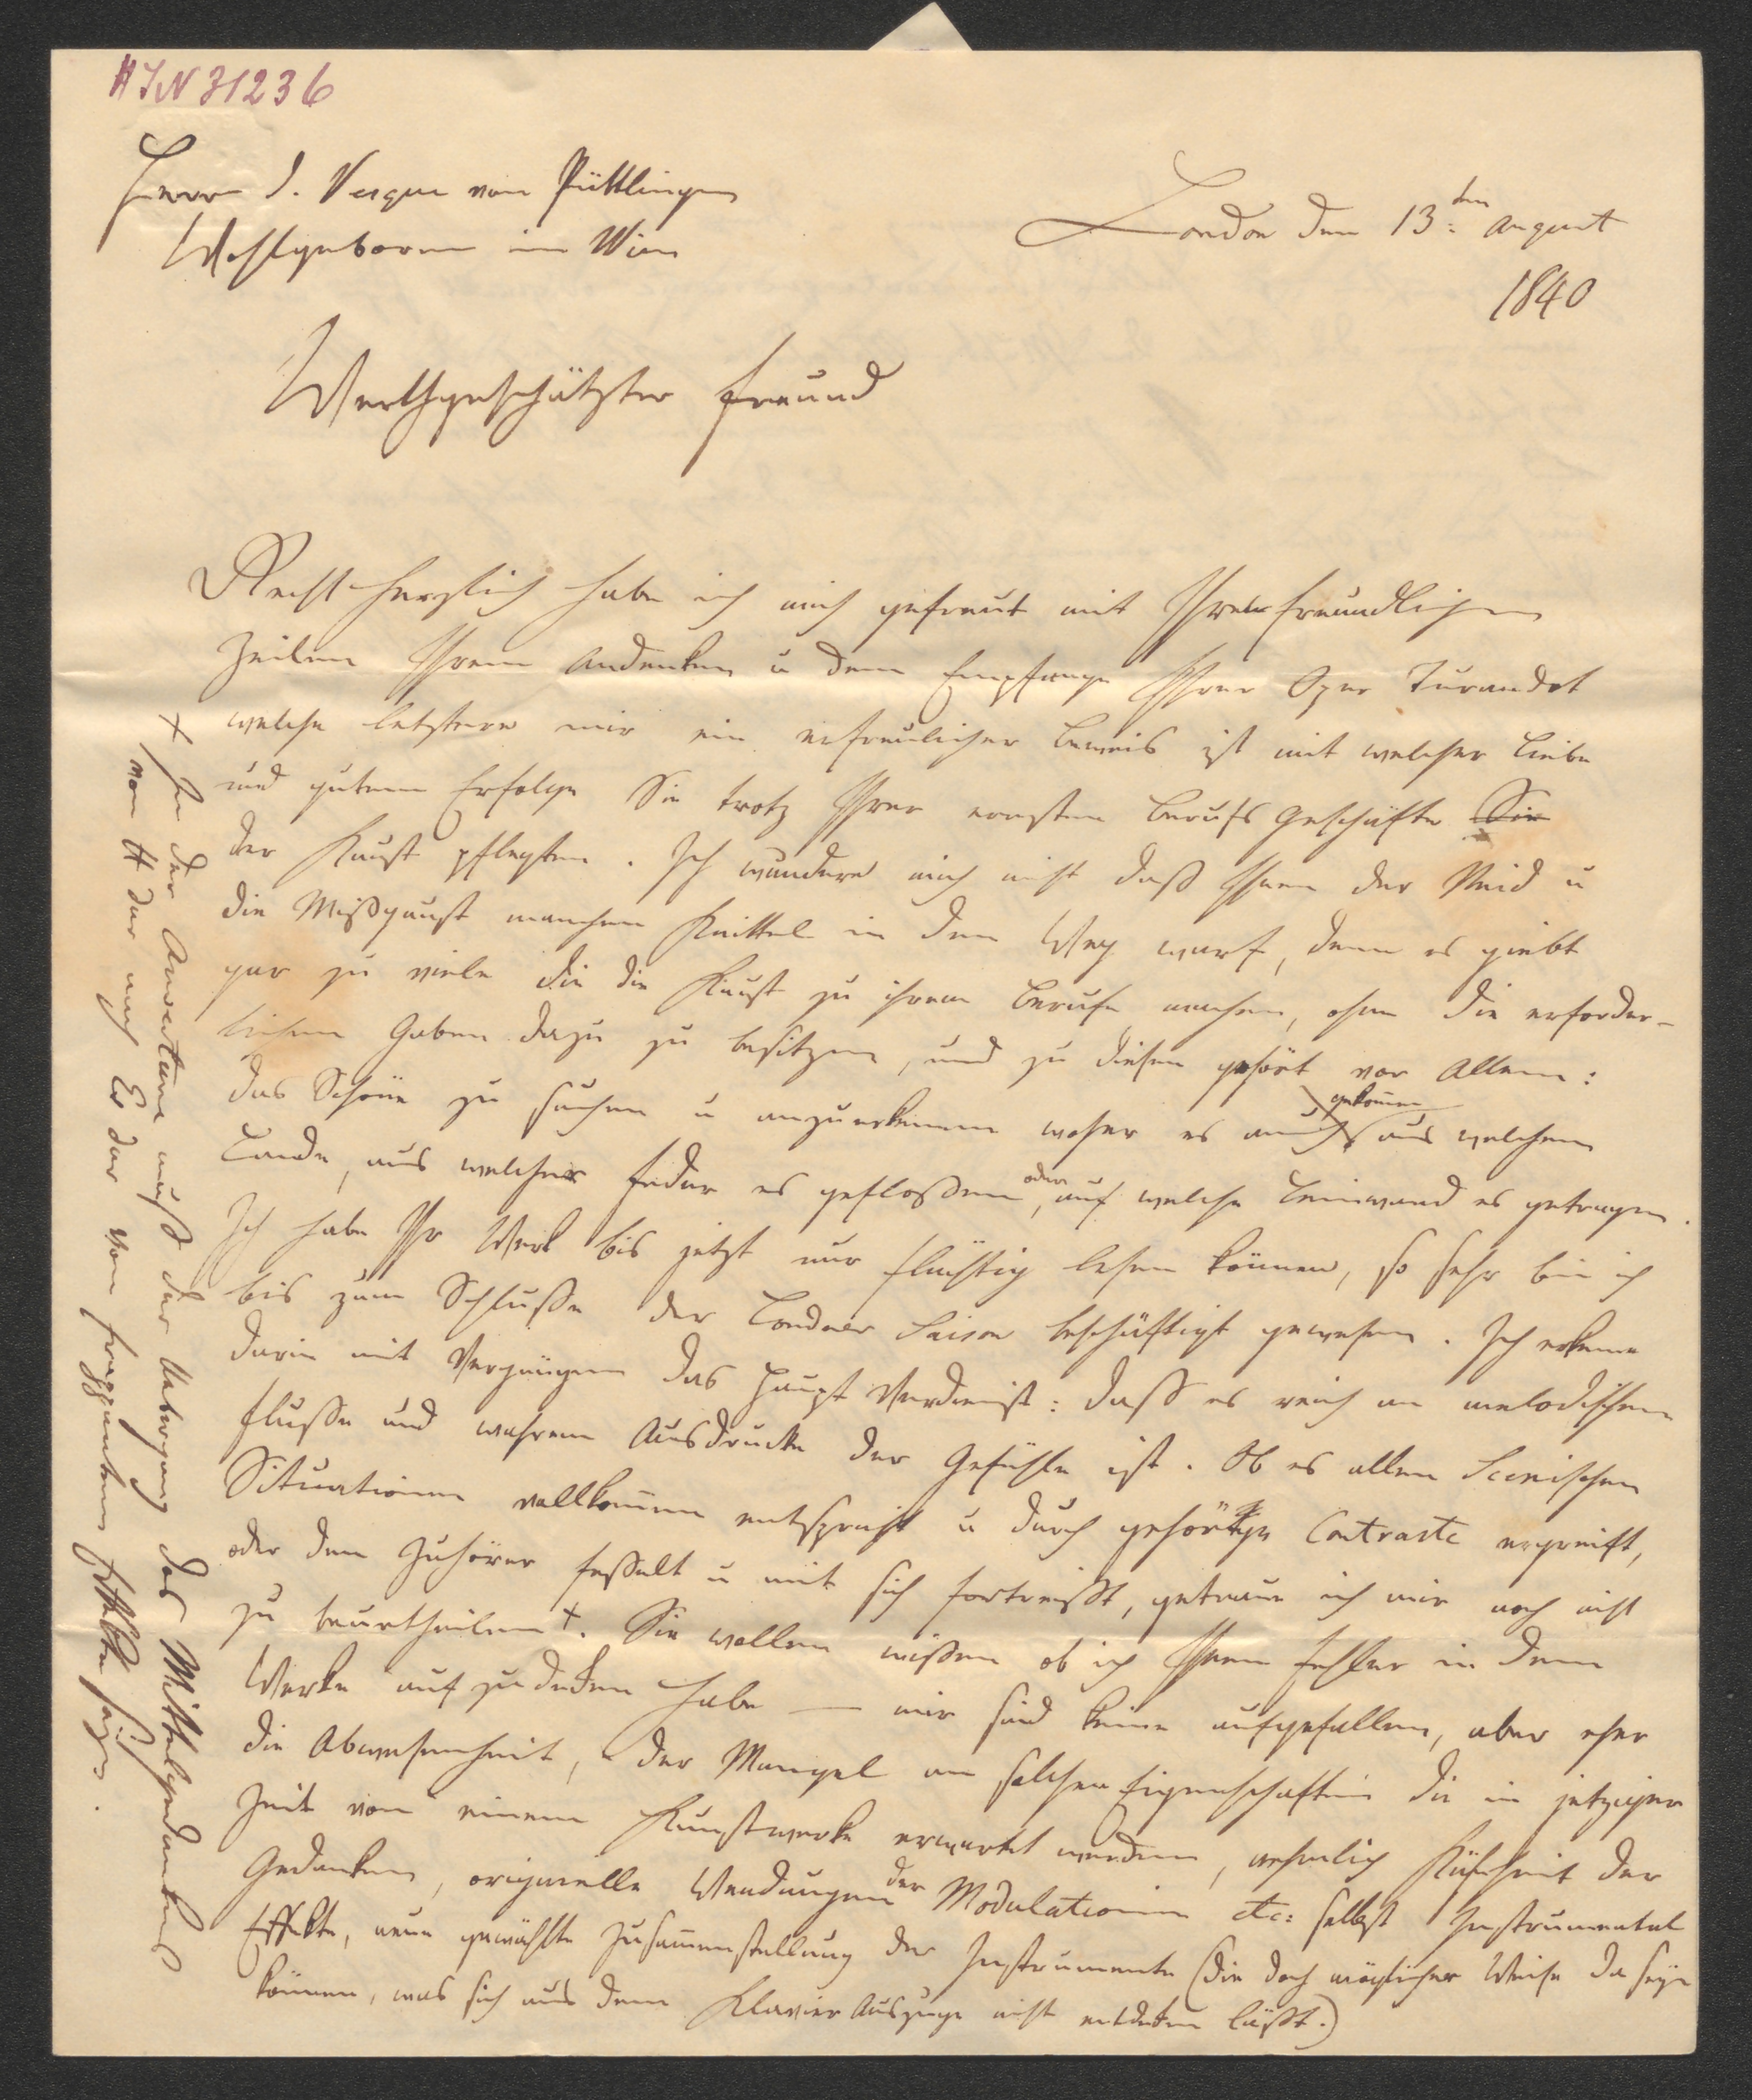 HIN 31236
Herrn J. Vesque von Püttlingen
Wohlgeboren in Wien
London den 13:ten August
1840
Werthgeschätzter Freund
Recht herzlich habe ich mich gefreut mit Ihren freundlichen
Zeilen Ihrem Andenken u dem Empfange Ihrer Oper Turandot
welche letztere mir ein erfreulicher Beweis ist mit welcher Liebe
und gutem Erfolge Sie trotz Ihrer ernsten Berufs Geschäfte Sie
der Kunst pflegten. Ich wundere mich nicht daß Ihnen der Neid u
die Mißgunst manchen Knittel in den Weg warf, denn es giebt
gar zu viele die die Kunst zu ihrem Berufe machen, ohne die erforder-
lichen Gaben dazu zu besitzen, und zu diesen gehört vor Allem:
das Schöne zu suchen u anzuerkennen woher es auch gekom̄en aus welchem
Lande, aus welcher Feder es geflossen oder, auf welche Leinwand es getragen.
Ich habe Ihr Werk bis jetzt nur flüchtig lesen können, so sehr bin ich
bis zum Schlusse der Londner Saison beschäftigt gewesen. Ich erkenne
darin mit Vergnügen das Haupt Verdienst: daß es reich an melodischem
Flusse und wahrem Ausdrucke der Gefühle ist. Ob es allen Scenischen
Situationen vollkom̄en entspricht u durch gehörige Contraste ergreift,
oder den Zuhörer fesselt u mit sich fortreißt, getraue ich mir noch nicht
zu beurtheilen +. Sie wollen wissen ob ich Ihnen Fehler in dem
Werke aufzudeken habe — mir sind keine aufgefallen, aber eher
die Abwesenheit, u der Mangel an solchen Eigenschaften die in jetziger
Zeit von einem Kunstwerke erwartet werden, nehmlich Kühnheit der
Gedanken, originelle Wendungen der Modulationen etc: selbst Instrumental
Effekte, neue gewählte Zusam̄enstellung der Instrumente (die doch möglicher Weise da seyn
können, was sich aus dem Klavier Auszuge nicht entdeken läßt.)
+ In der Ouverture muß der Uebergang des Mittelgedankens
von H dur nach Es dur von frappantem Effekte seyn.